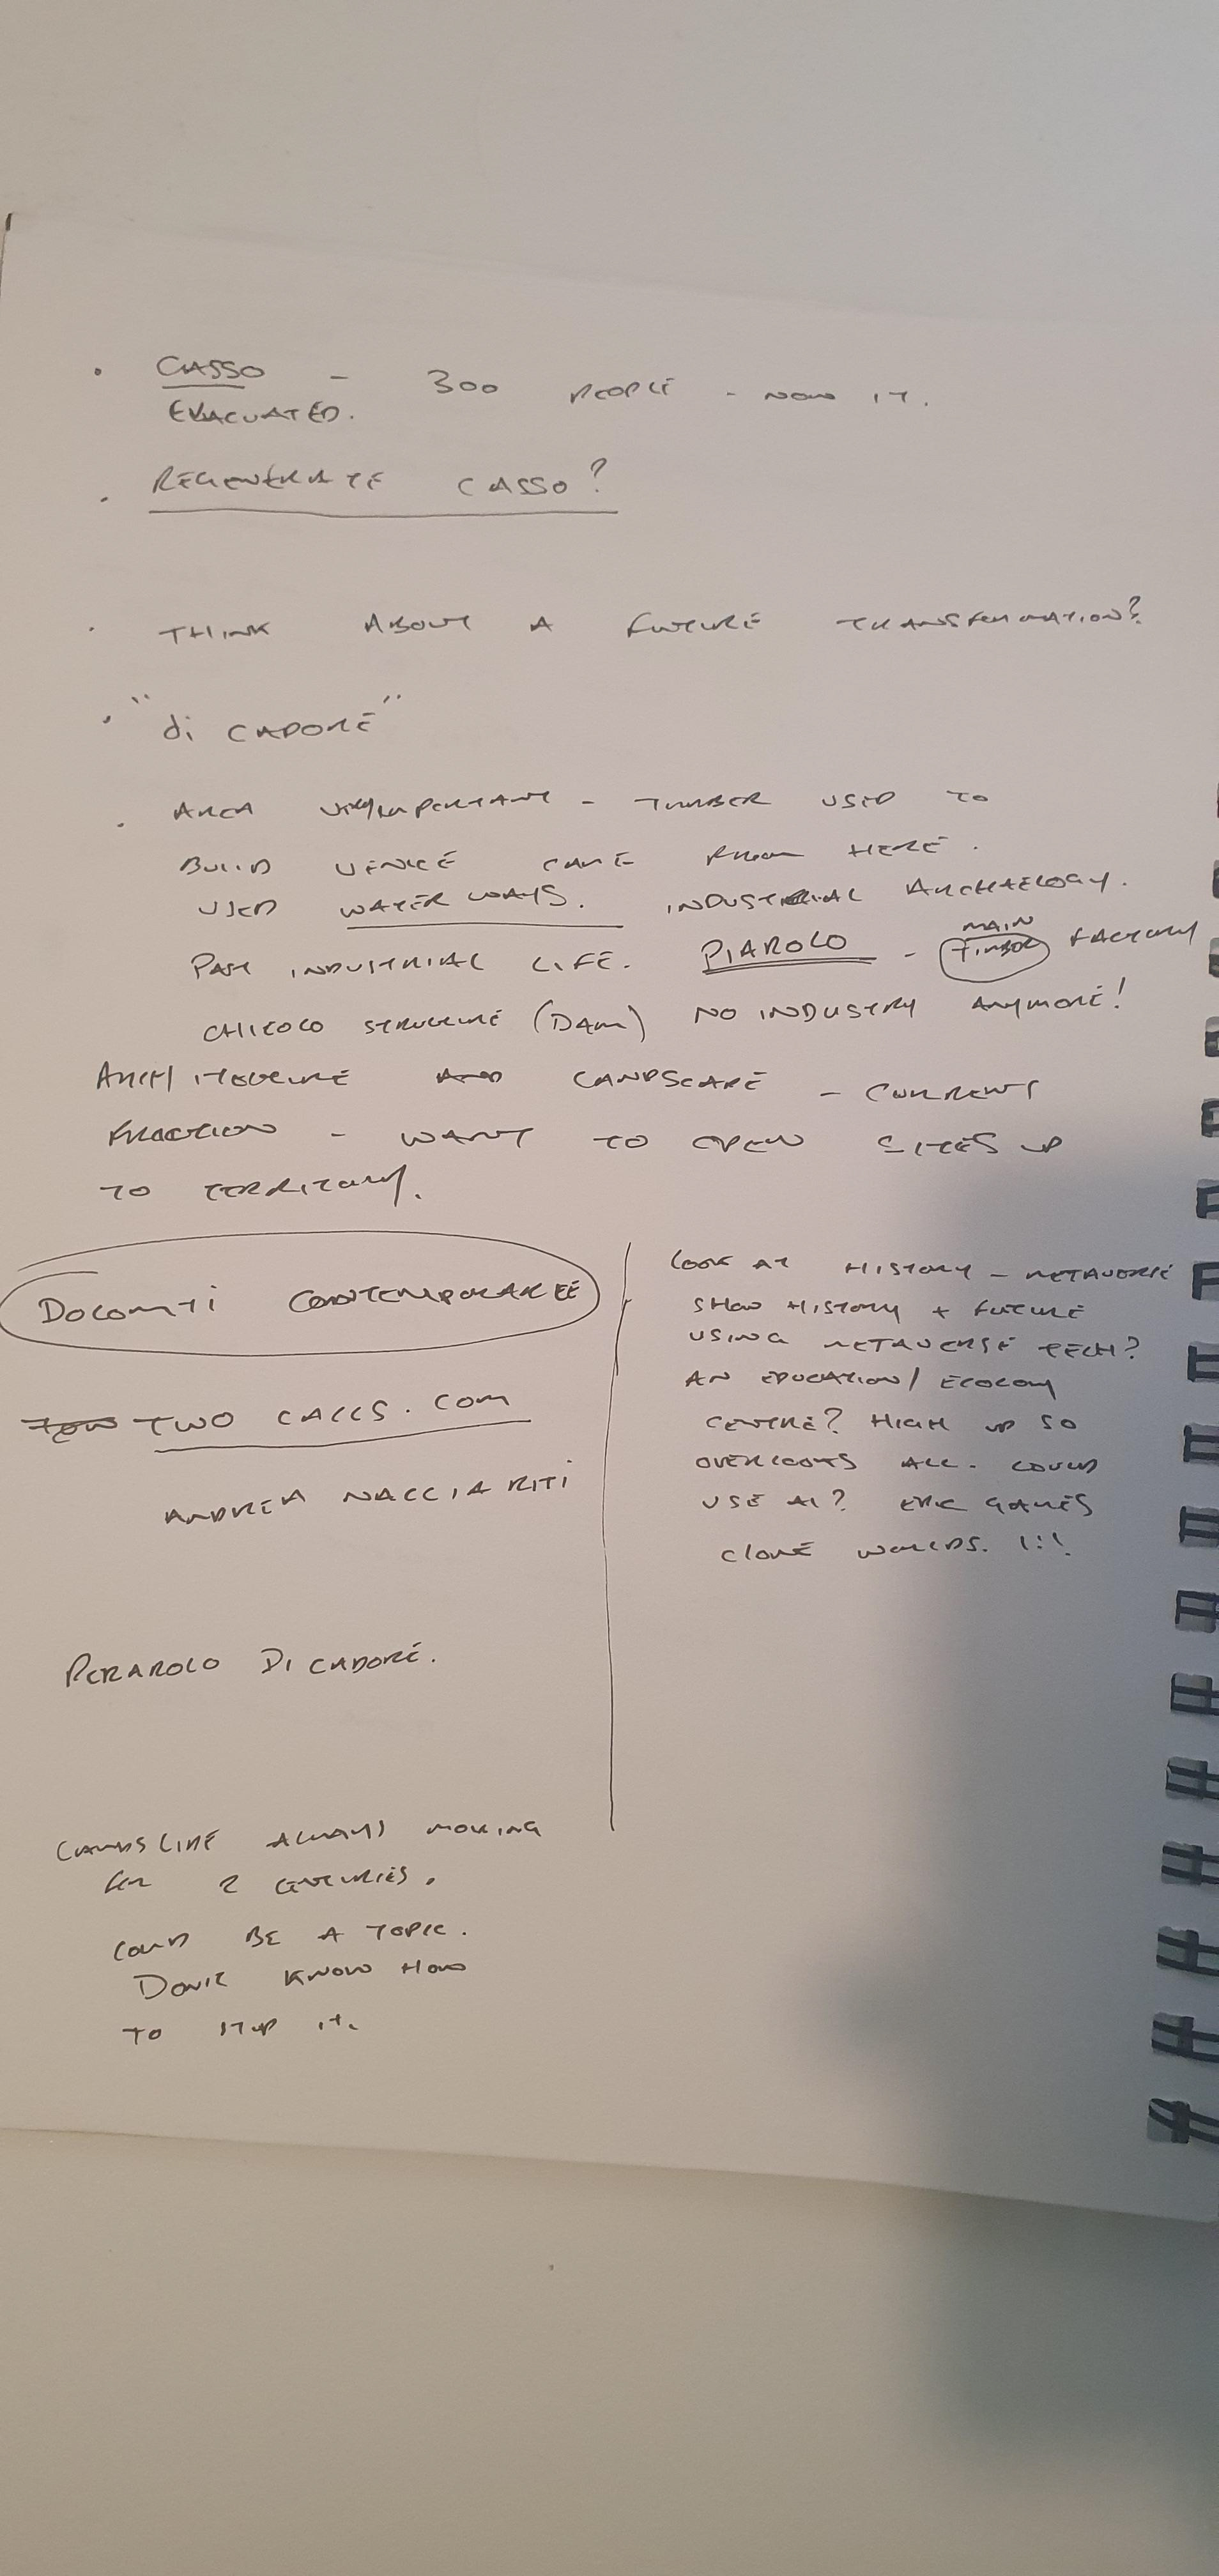 • CASSO - 300 PEOPLE - NOW 17.
EVACUATED.
• REGENERATE CASSO?
• THINK ABOUT A FUTURE TRANSFORMATION?
• "di CADORE"
• AREA VERY IMPORTANT - TIMBER USED TO
BUILD VENICE CAME FROM HERE.
USED WATER WAYS. INDUSTRIAL ARCHAELOGY.
MAIN
PAST INDUSTRIAL LIFE. PIAROLO - TIMBER FACTORY
STRUCTURE (DAM) NO INDUSTRY ANYMORE!
ARCHITECTURE AND LANDSCAPE - CURRENT
FUNCTION - WANT TO OPEN SITES UP
TO TERRITORY.
DOLOMITI CONTEMPORANEE
TWO CALLS.COM
ANDREA NACCIARITI
PERAROLO DI CADORE.
LANDSLIDE ALWAYS MOVING
FOR 2 CENTURIES.
COULD BE A TOPIC.
DON'T KNOW HOW
TO STOP IT.
LOOK AT HISTORY - METAVERSE
SHOW HISTORY + FUTURE
USING METAVERSE TECH?
AN EDUCATION/ ECOLOGY
CENTRE? HIGH UP SO
OVERLOOKS ALL. COULD
USE AI? EPIC GAMES
CLONE WORLDS. 1:1.